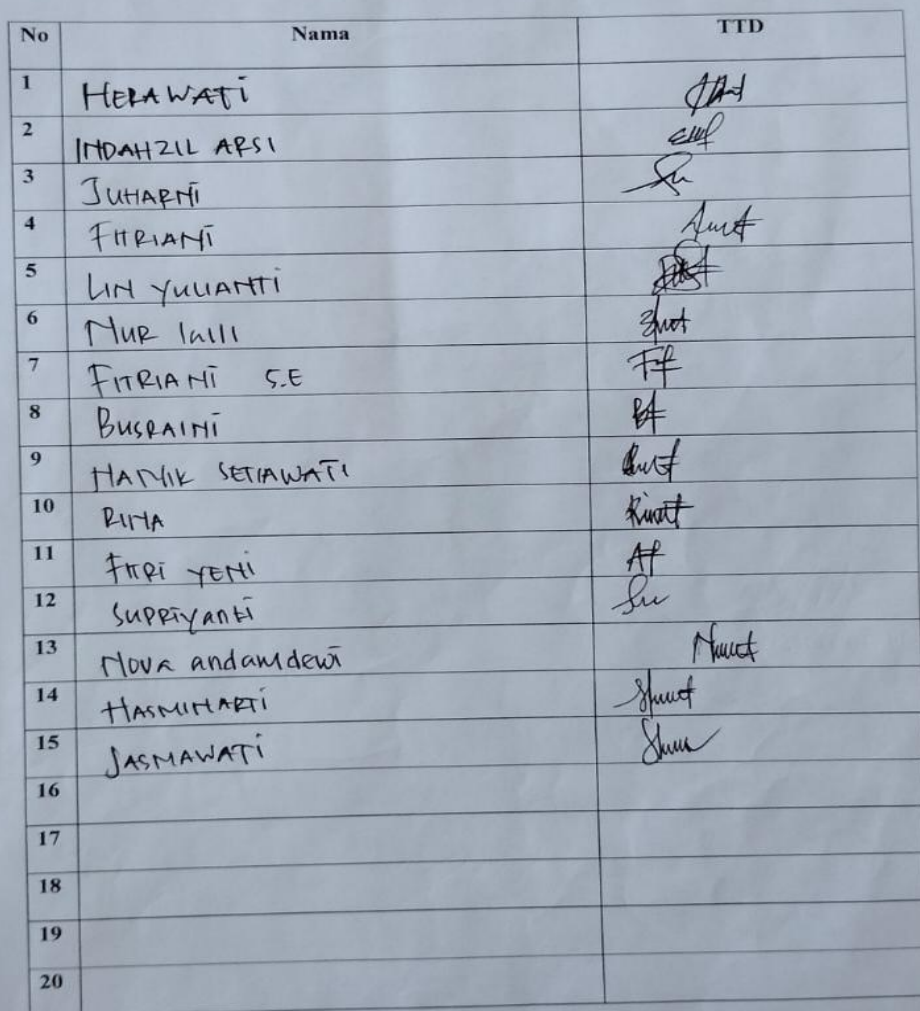 No Nama TTD
1 HERAWATI
2 INDAHZIL ARSI
3 JUHARNI
4 FITRIANI
5 LIN YULIANTI
6 NUR laili
7 FITRIANI S.E
8 BUSRAINI
9 HANIK SETIAWATI
10 RINA
11 FITRI YENI
12 SUPRIYANTI
13 Nova andamdewi
14 HASMINARTI
15 JASMAWATI
16
17
18
19
20